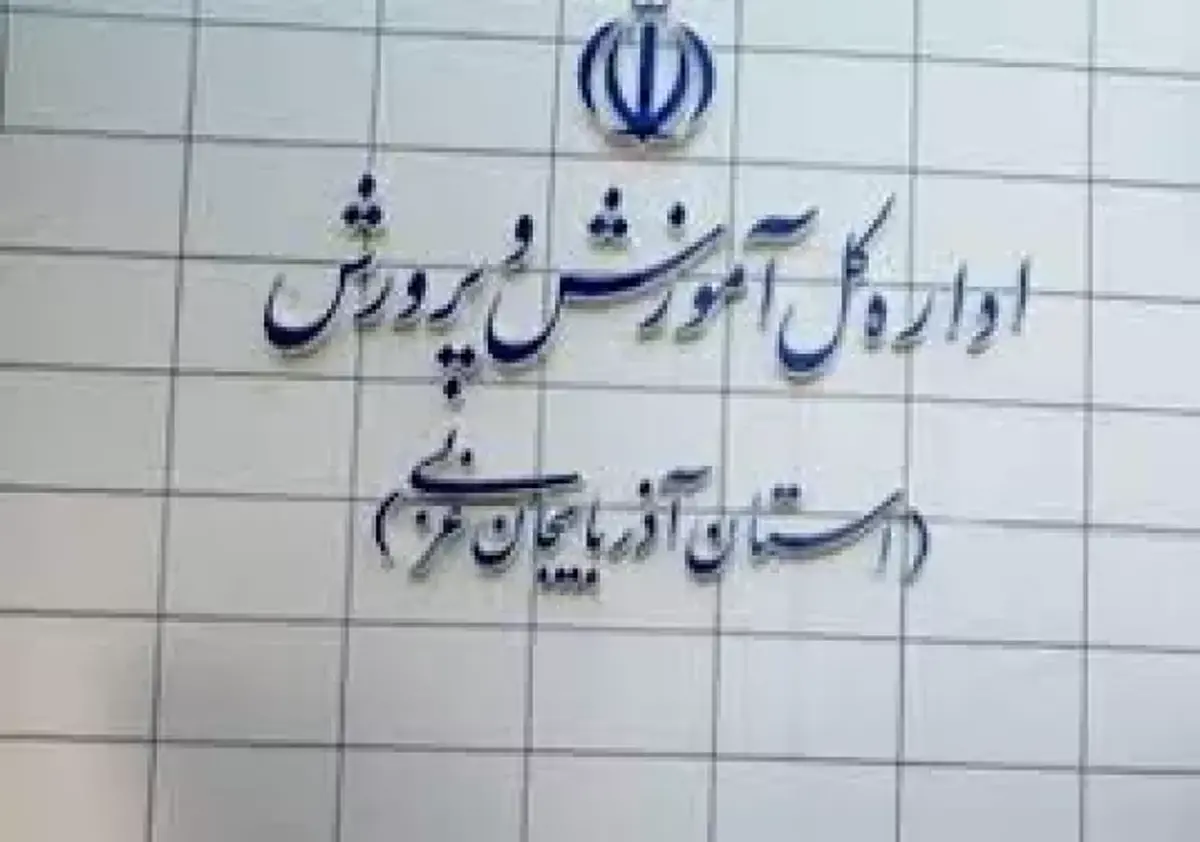 اداره کل آموزش و پرورش
(استان آذربایجان غربی)